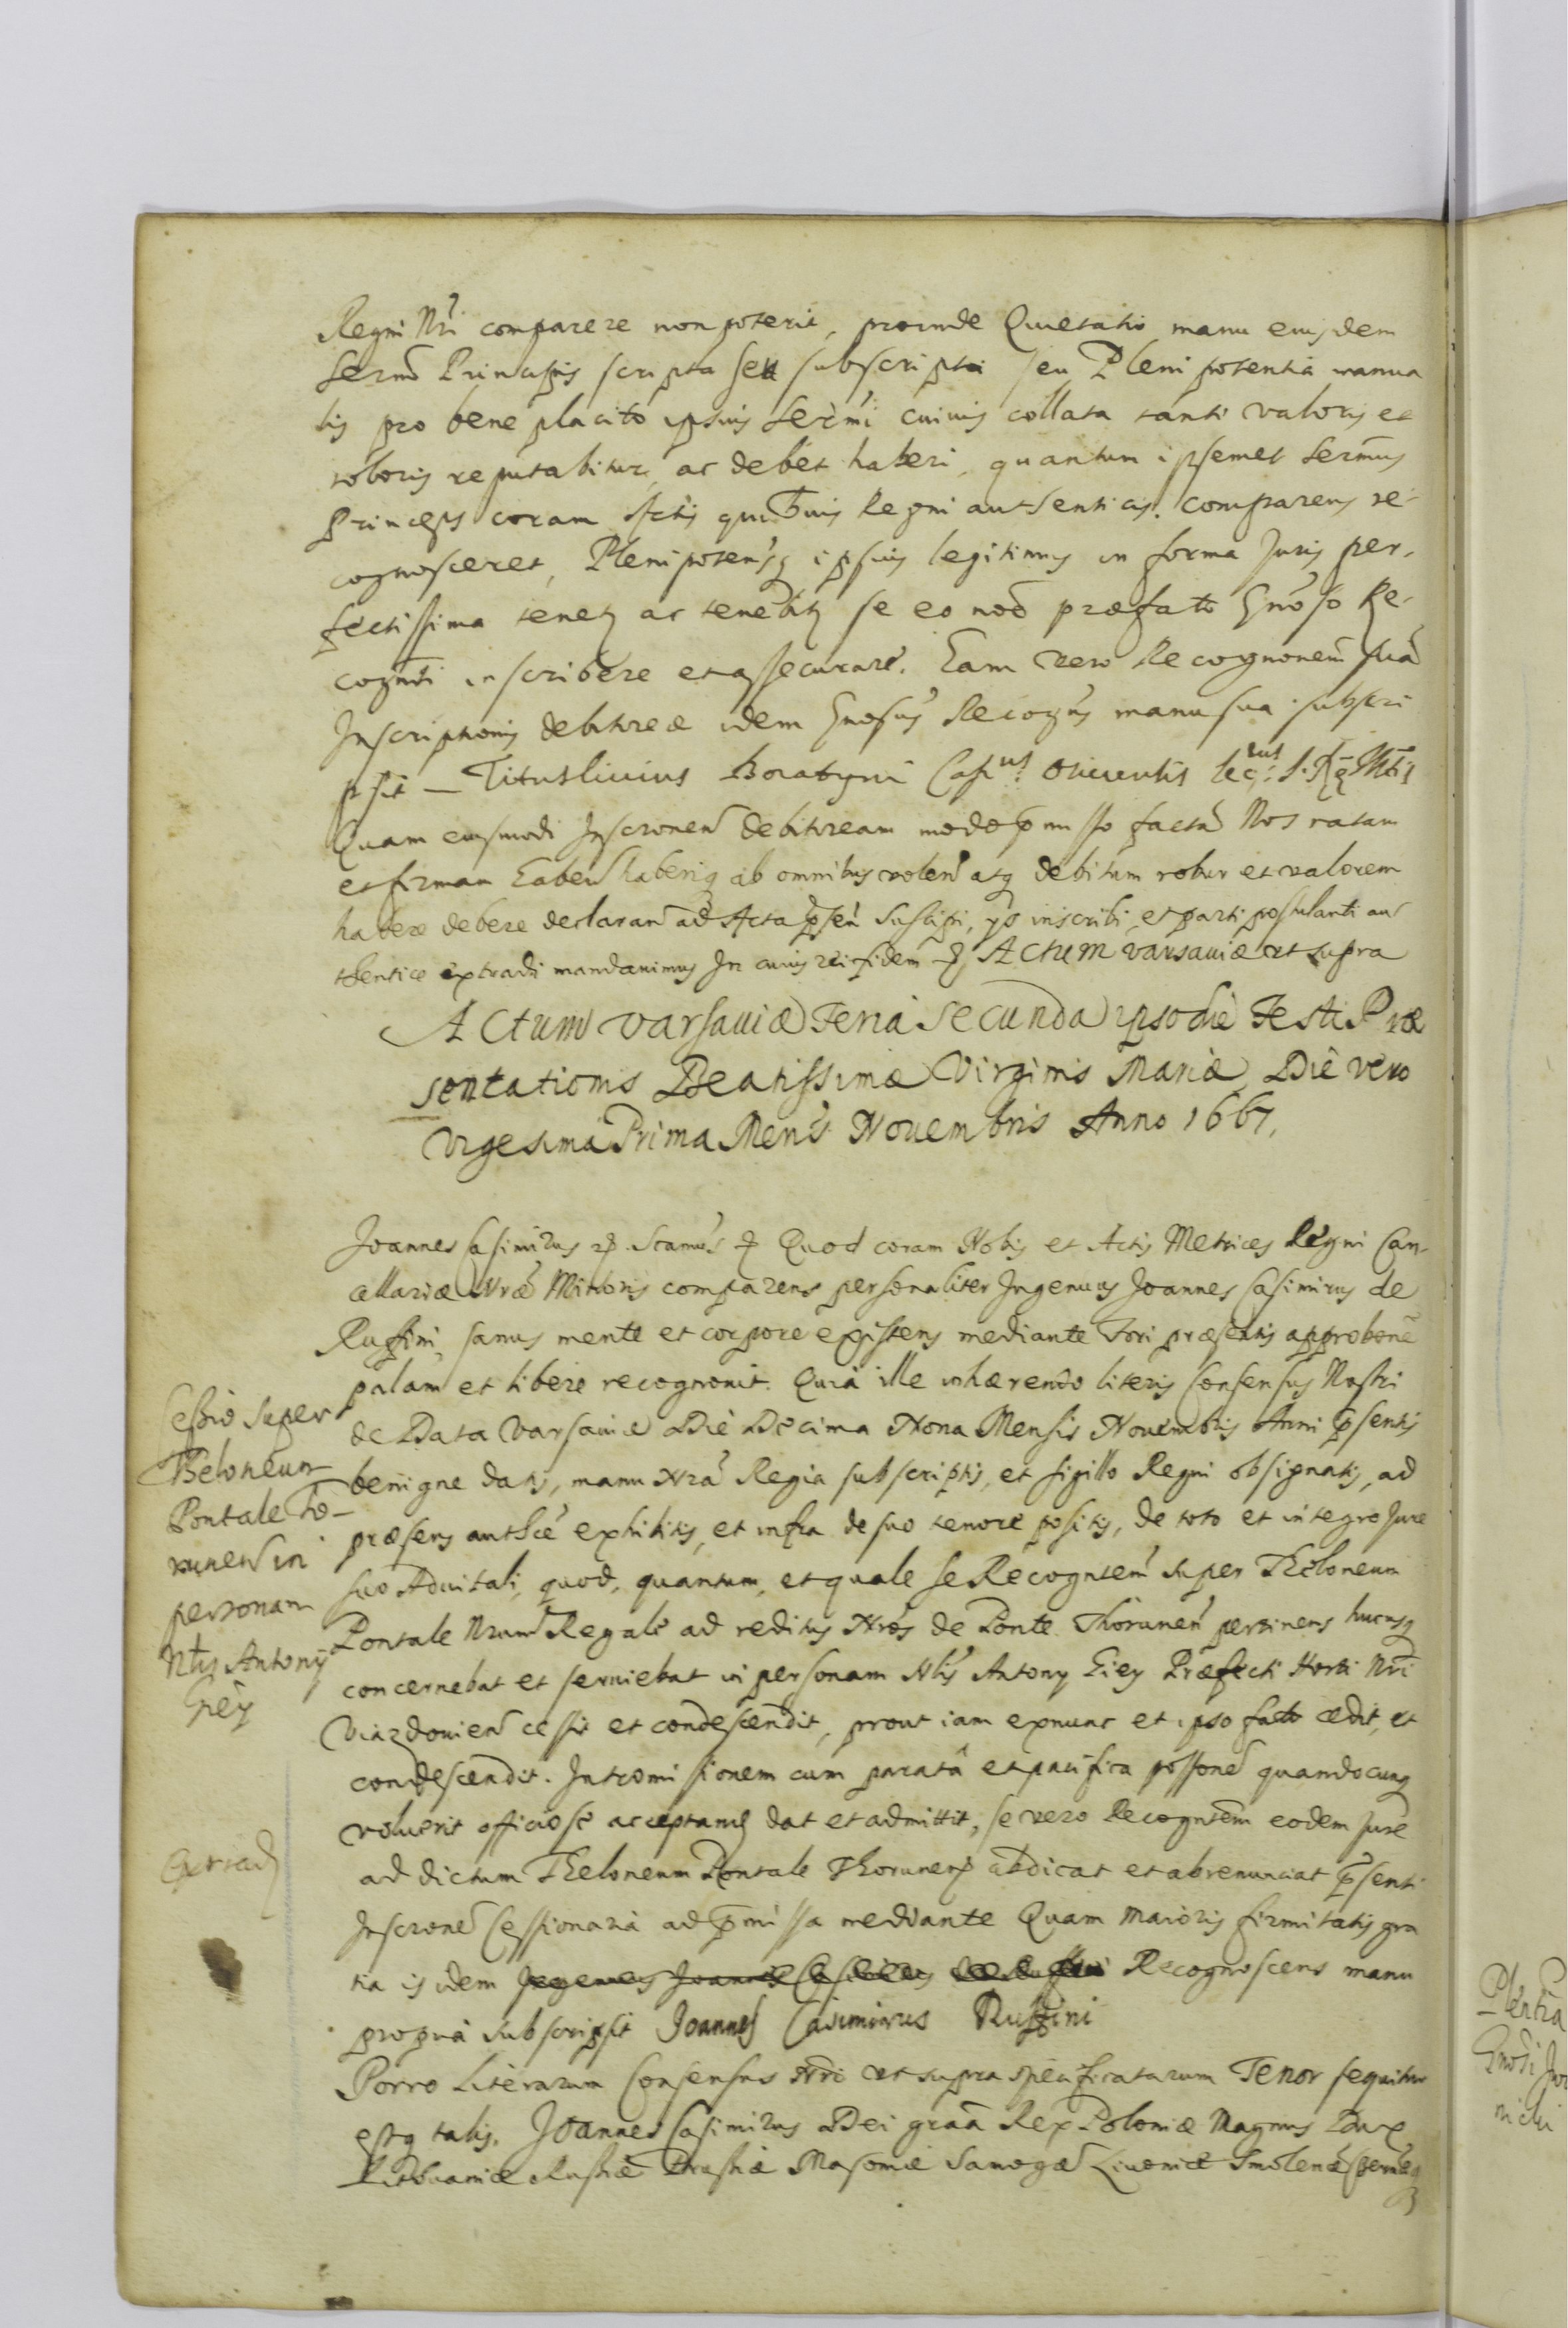 Regni Nri comparere non poterit, proinde Quietatio manu eiusdem
Sermi Principis scripta seu subscripta seu Plenipotentia manua
lis pro bene placito ipsius Sermi cuivis collata tanti valoris et
roboris reputabitur, ac debet haberi, quantum ipsemet Sermus
Princeps coram Actis quibusvis Regni authenticis comparens re-
cognosceret, Plenipotensq ipsius legitimus in forma Juris per-
fectissima tenetur ac tenebitur se eo noe præfato Gnoso Re-
cognti inscribere et assecurare. Eam vero Recognonem suã
Inscriptionis debitoreæ idem Gnosus Recogns manu sua subscri
psit — Titus Livius Boratyni Capnus Osiecensis Secrius S. Rg Mtis
Quam eiusmodi Inscronem debitoream modo pmisso factã Nos ratam
et firmam haben haberiq ab omnibus volen atq debitum robur et valorem
habere debere declaran ad Acta psen suscipi, ys inscribi, et parti postulanti au
thentice extradi mandavimus In cuius rei fidem Actum Varsaviæ ut supra
Actum Varsaviæ Feria Secunda ipso die Festi Præ
sentationis Beatissimæ Virginis Mariæ Die vero
Vigesima Prima Mens Novembris Anno 1667.
Joannes Casimirus Scamus Quod coram Nobis et Actis Metrices Regni Can-
cellariæ Nræ Minoris comparens personaliter Ingenuus Joannes Casimirus de
Ruffini, sanus mente et corpore existens mediante Fori præsentis approbone
palam et libere recognovit. Quia ille inhærendo literis Consensus Nostri
de Data Varsaviæ Die Decima Nona Mensis Novembris Anni psentis
benigne datis, manu Nra Regia subscriptis, et sigillo Regni obsignatis, ad
præsens authce exhibitis, et infra de suo tenore positis, de toto et integro Jure
suo Advitali, quod, quantum, et quale se Recogntem super Theloneum
Pontale Nrum Regale ad reditus Nros de Ponte Thorunen pertinens hucusq
concernebat et serviebat in personam Nlis Antony Giey Præfecti Horti Nri
Viazdovien cessit et condescendit, prout iam exnunc et ipso facto cedit, et
condescendit. Intromissionem cum parata et pacifica possone quandocunq
voluerit officiose acceptand dat et admittit, se vero Recogntem eodem Jure
ad dictum Theloneum Pontale Thorunen abdicat et abrenunciat psenti
Inscrone Cessionaria ad pmissa mediante Quam maioris firmitatis gra
tia is idem Ingenuus Joannes Casimirus de Ruffini Recognoscens manu
propria subscripsit Joannes Casimirus Ruffini
Porro Literarum Consensus Nri ut supra specificatarum Tenor sequitur
estq talis. Joannes Casimirus Dei graã Rex Poloniæ Magnus Dux
Lithvaniæ Russiæ Prussiæ Masoviæ Samogæ Livoniæ Smolenæ Czernæq
Cessio super
Theloneum
Pontale Tho-
runen in
personam
Nlis Antony
Giey
Extrad
Plentia
Gnosi